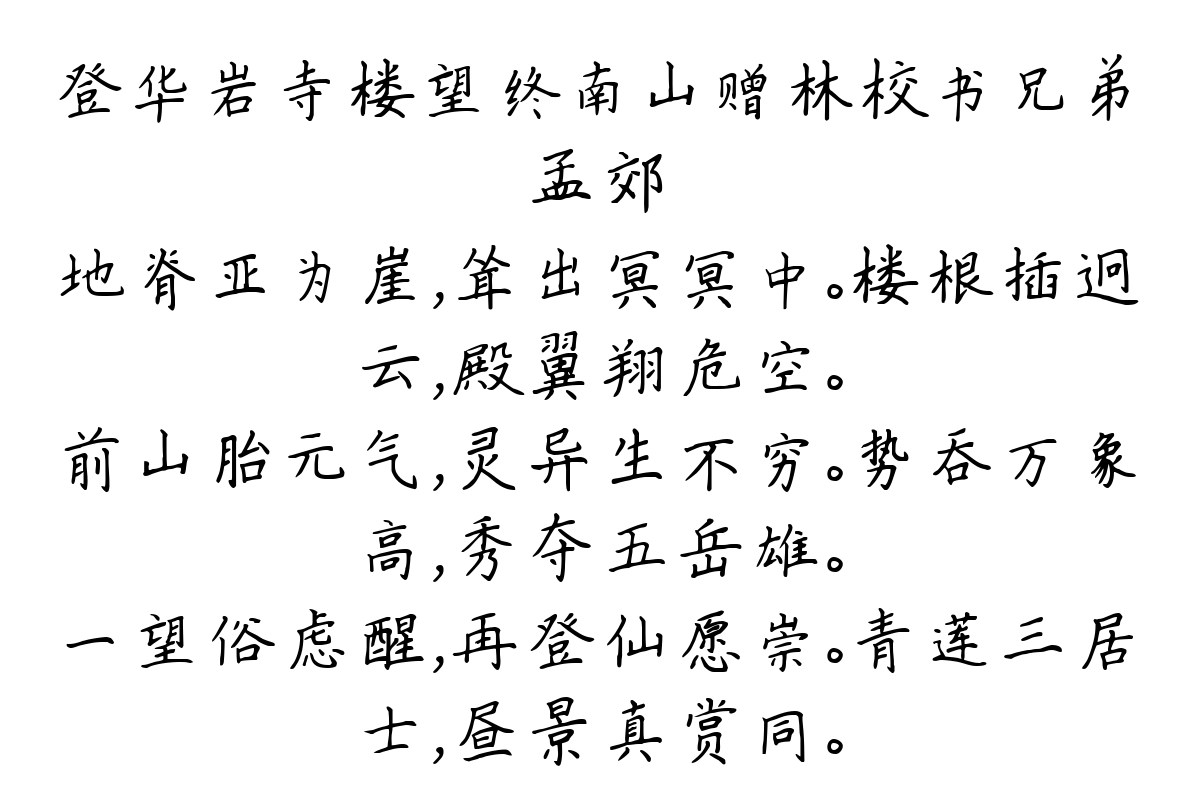 登华岩寺楼望终南山赠林校书兄弟
孟郊
地脊亚为崖,耸出冥冥中。楼根插迥
云,殿翼翔危空。
前山胎元气,灵异生不穷。势吞万象
高,秀夺五岳雄。
一望俗虑醒,再登仙愿崇。青莲三居
士,昼景真赏同。